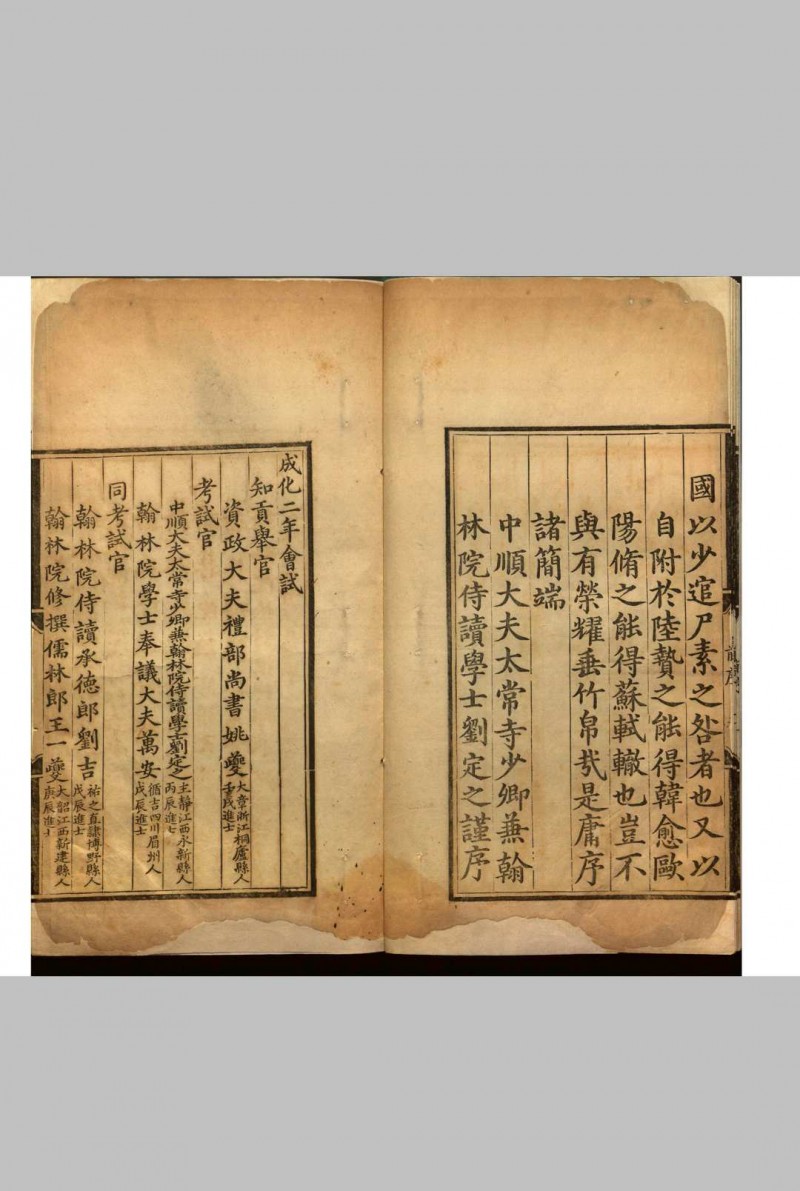 國以少逭尸素之咎者也又以
自附於陸贄之能得韓愈歐
陽脩之能得蘇軾轍也豈不
與有榮耀垂竹帛㦲是庸序
諸簡端
中順大夫太常寺少卿兼翰
林院侍讀學士劉定之謹序
成化二年會試
知貢舉官
資政大夫禮部尚書姚夔 大章浙江桐廬縣人壬戌進士
考試官
中順大夫太常寺少卿兼翰林院侍讀學士劉定之 主靜江西永新縣人丙辰進士
翰林院學士奉議大夫萬安 循吉四川眉州人戊辰進士
同考試官
翰林院侍讀承德郎劉吉 祐之直隷博野縣人戊辰進士
翰林院修撰儒林郎王一夔 大韶江西新建縣人庚辰進士